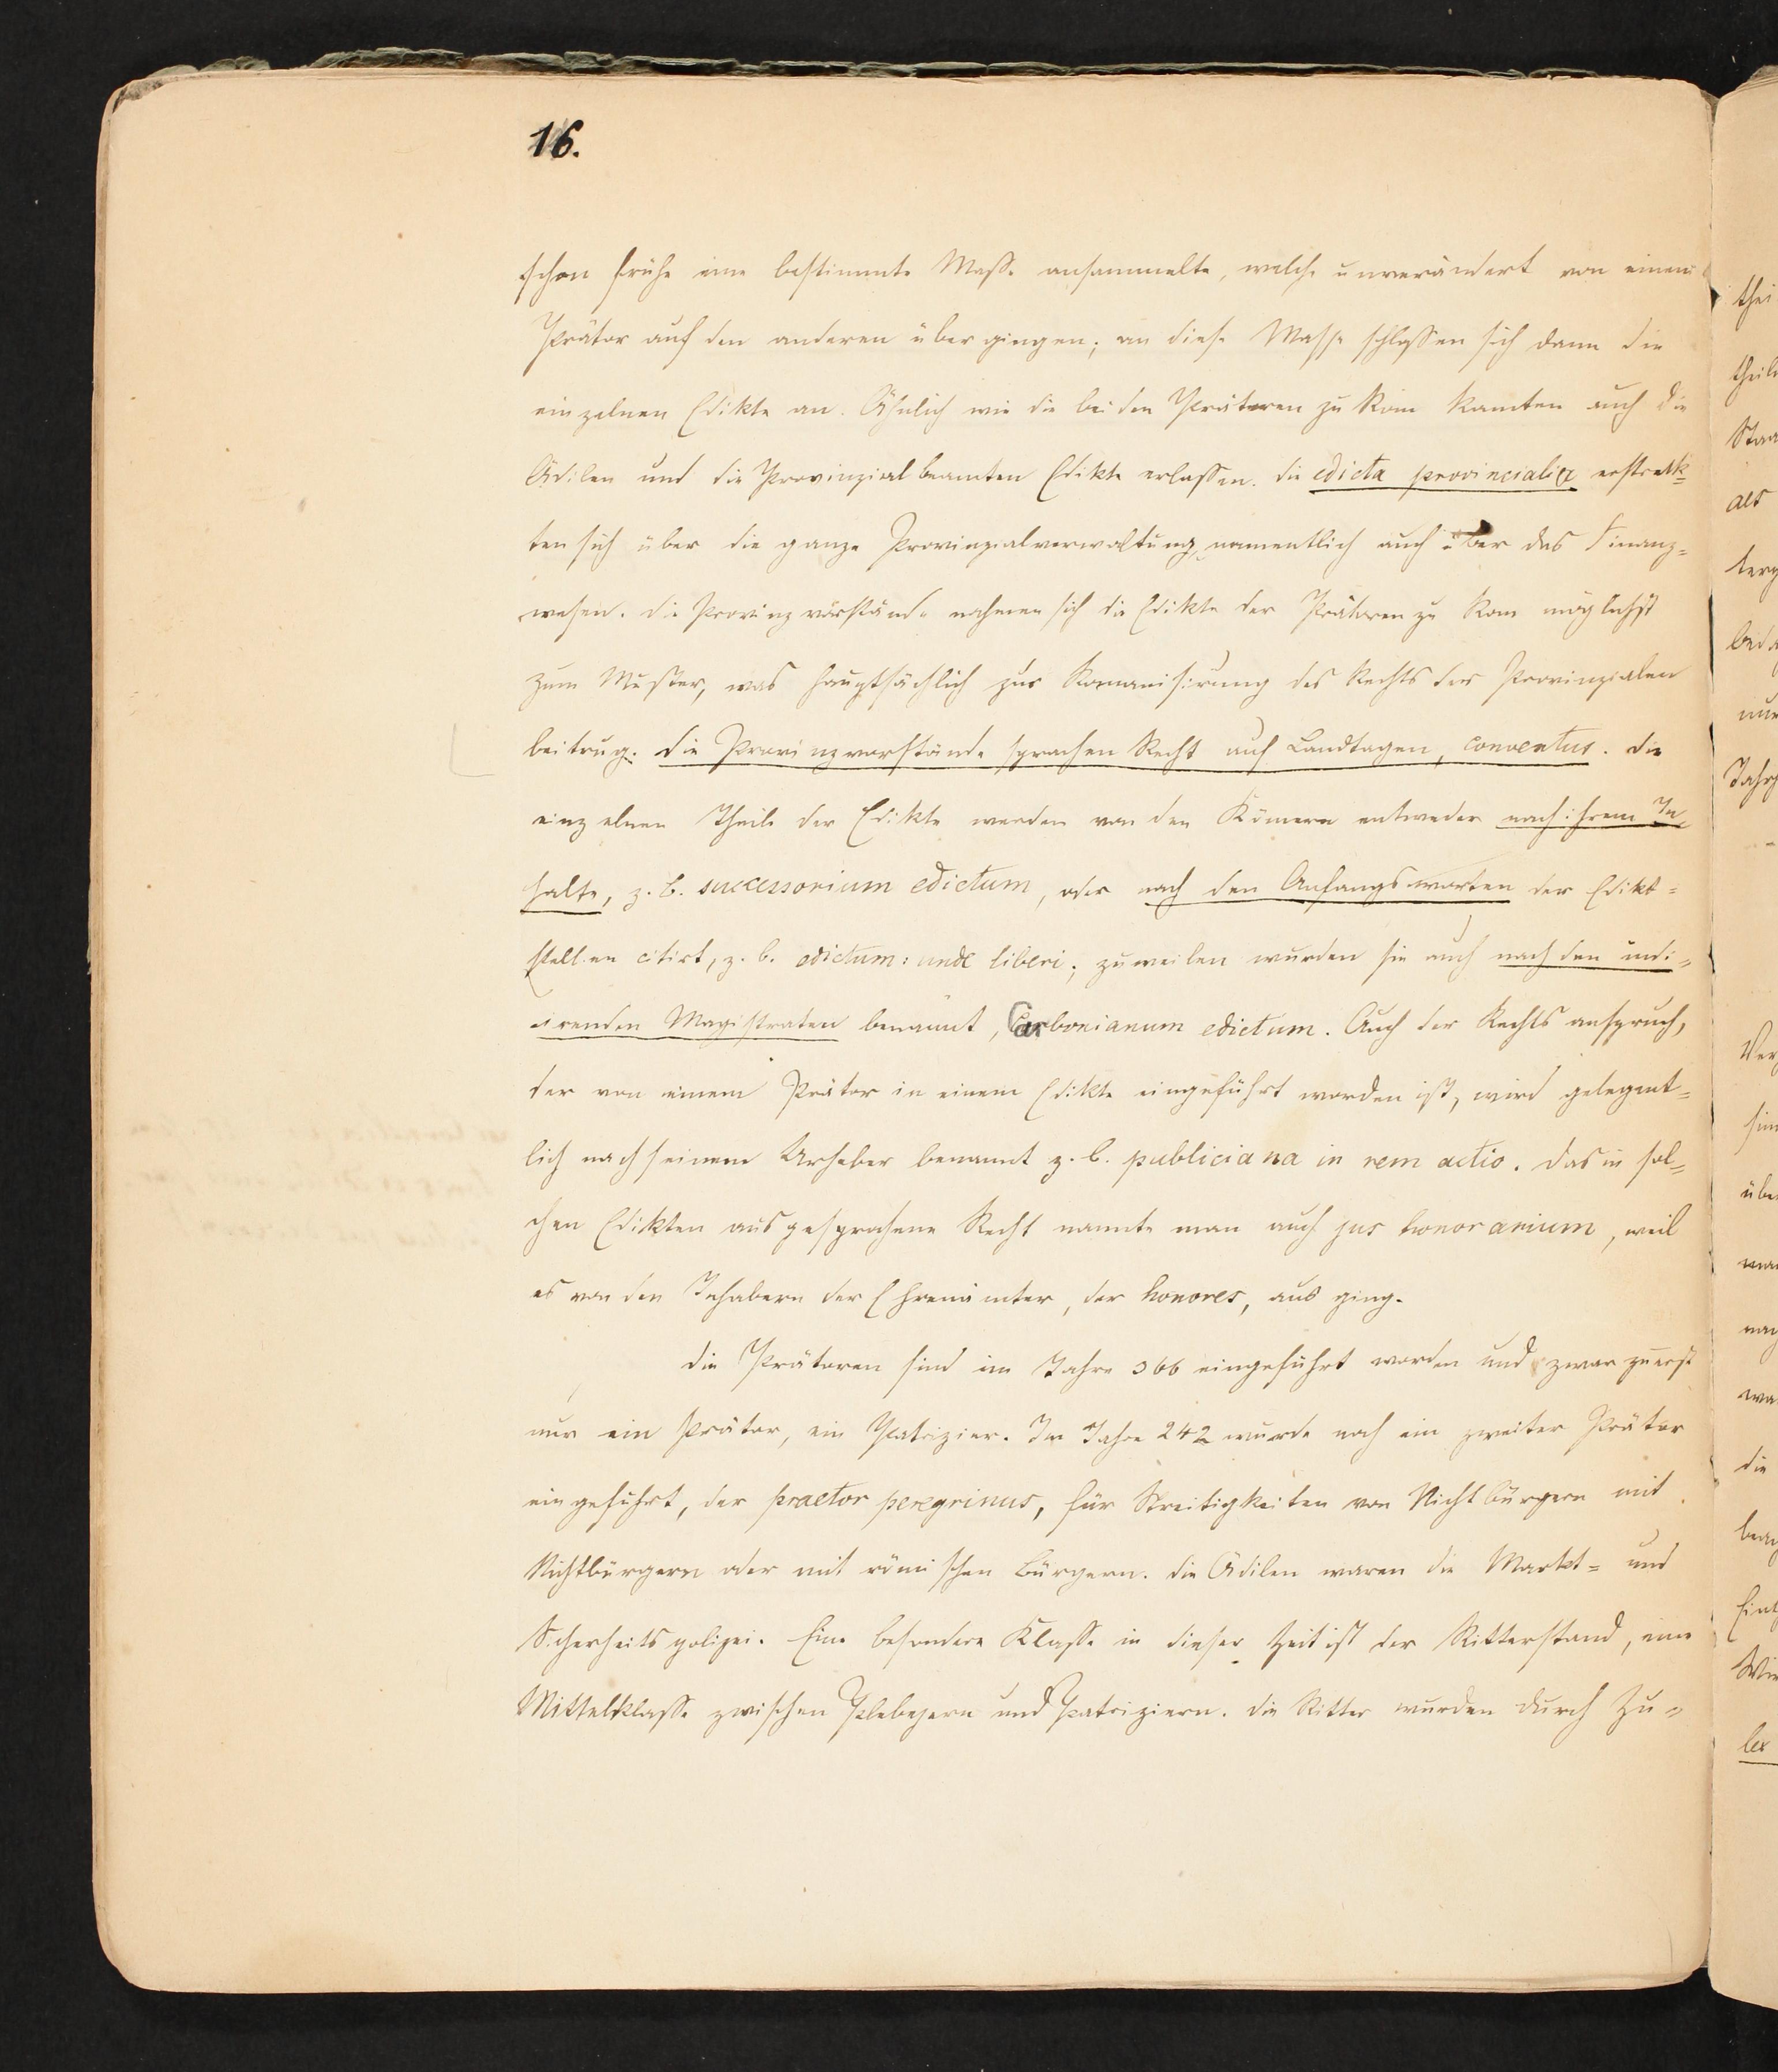 16.
schon frühe eine bestimmte Masse ansammelte, welche unverändert von einem
Prätor auf den anderen übergingen; an diese Masse schlossen sich dann die
einzelnen Edikte an. Ähnlich wie die beiden Prätoren zu Rom konnten auch die
Ädilen und die Provinzialbeamten Edikte erlassen. Die edicta provincialia erstreck=
ten sich über die ganze Provinzialverwaltung, namentlich auch über das Finanz=
wesen. Die Provinzvorstände nahmen sich die Edikte der Prätoren zu Rom möglichst
zum Muster, was hauptsächlich zur Romanisirung des Rechts der Provinzialen
beitrug. Die Provinzvorstände sprachen Recht auf Landtagen, conventus. Die
einzelnen Theile der Edikte werden von den Römern entweder nach ihrem In=
halte, z. B. successorium edictum, oder nach den Anfangsworten der Edikt=
stellen citirt, z. B. edictum: unde liberi; zuweilen wurden sie auch nach den indi=
cirenden Magistraten benannt, Carbonianum edictum. Auch der Rechtsanspruch,
der von einem Prätor in einem Edikte eingeführt worden ist, wird gelegent=
lich nach seinem Urheber benannt z. B. publiciana in rem actio. Das in sol=
chen Edikten ausgesprochene Recht nannte man auch jus honorarium, weil
es von den Inhabern der Ehrenämter, der honores, ausging.
Die Prätoren sind im Jahre 366 eingeführt worden und zwar zuerst
nur ein Prätor, ein Patrizier. Im Jahre 242 wurde noch ein zweiter Prätor
eingeführt, der praetor peregrinus, für Streitigkeiten von Nichtbürgern mit
Nichtbürgern oder mit römischen Bürgern. Die Ädilen waren die Markt= und
Sicherheitspolizei. Eine besondere Klasse in dieser Zeit ist der Ritterstand, eine
Mittelklasse zwischen Plebejern und Patriziern. Die Ritter wurden durch Zu=